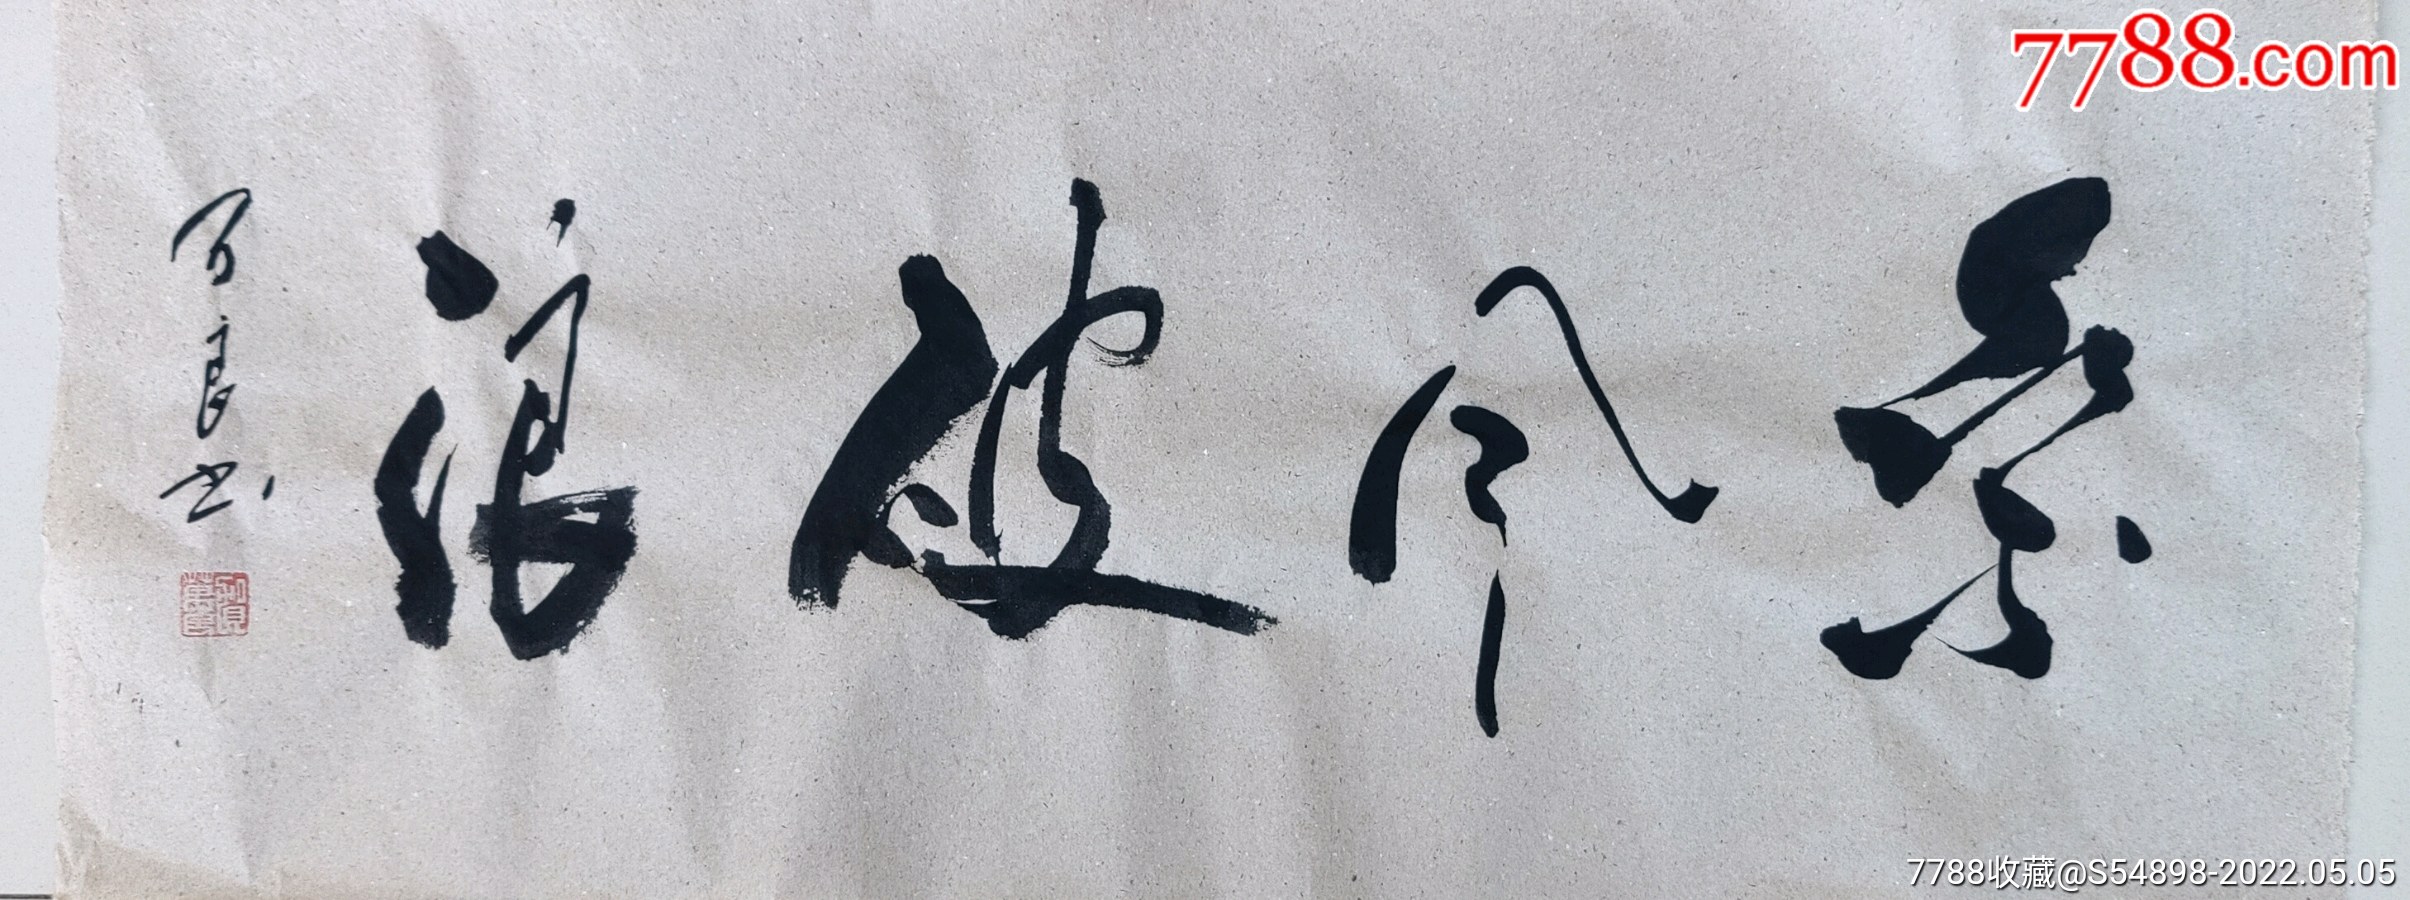 7788.com
乘风破浪
良书
7788收藏@S54898-2022.05.05